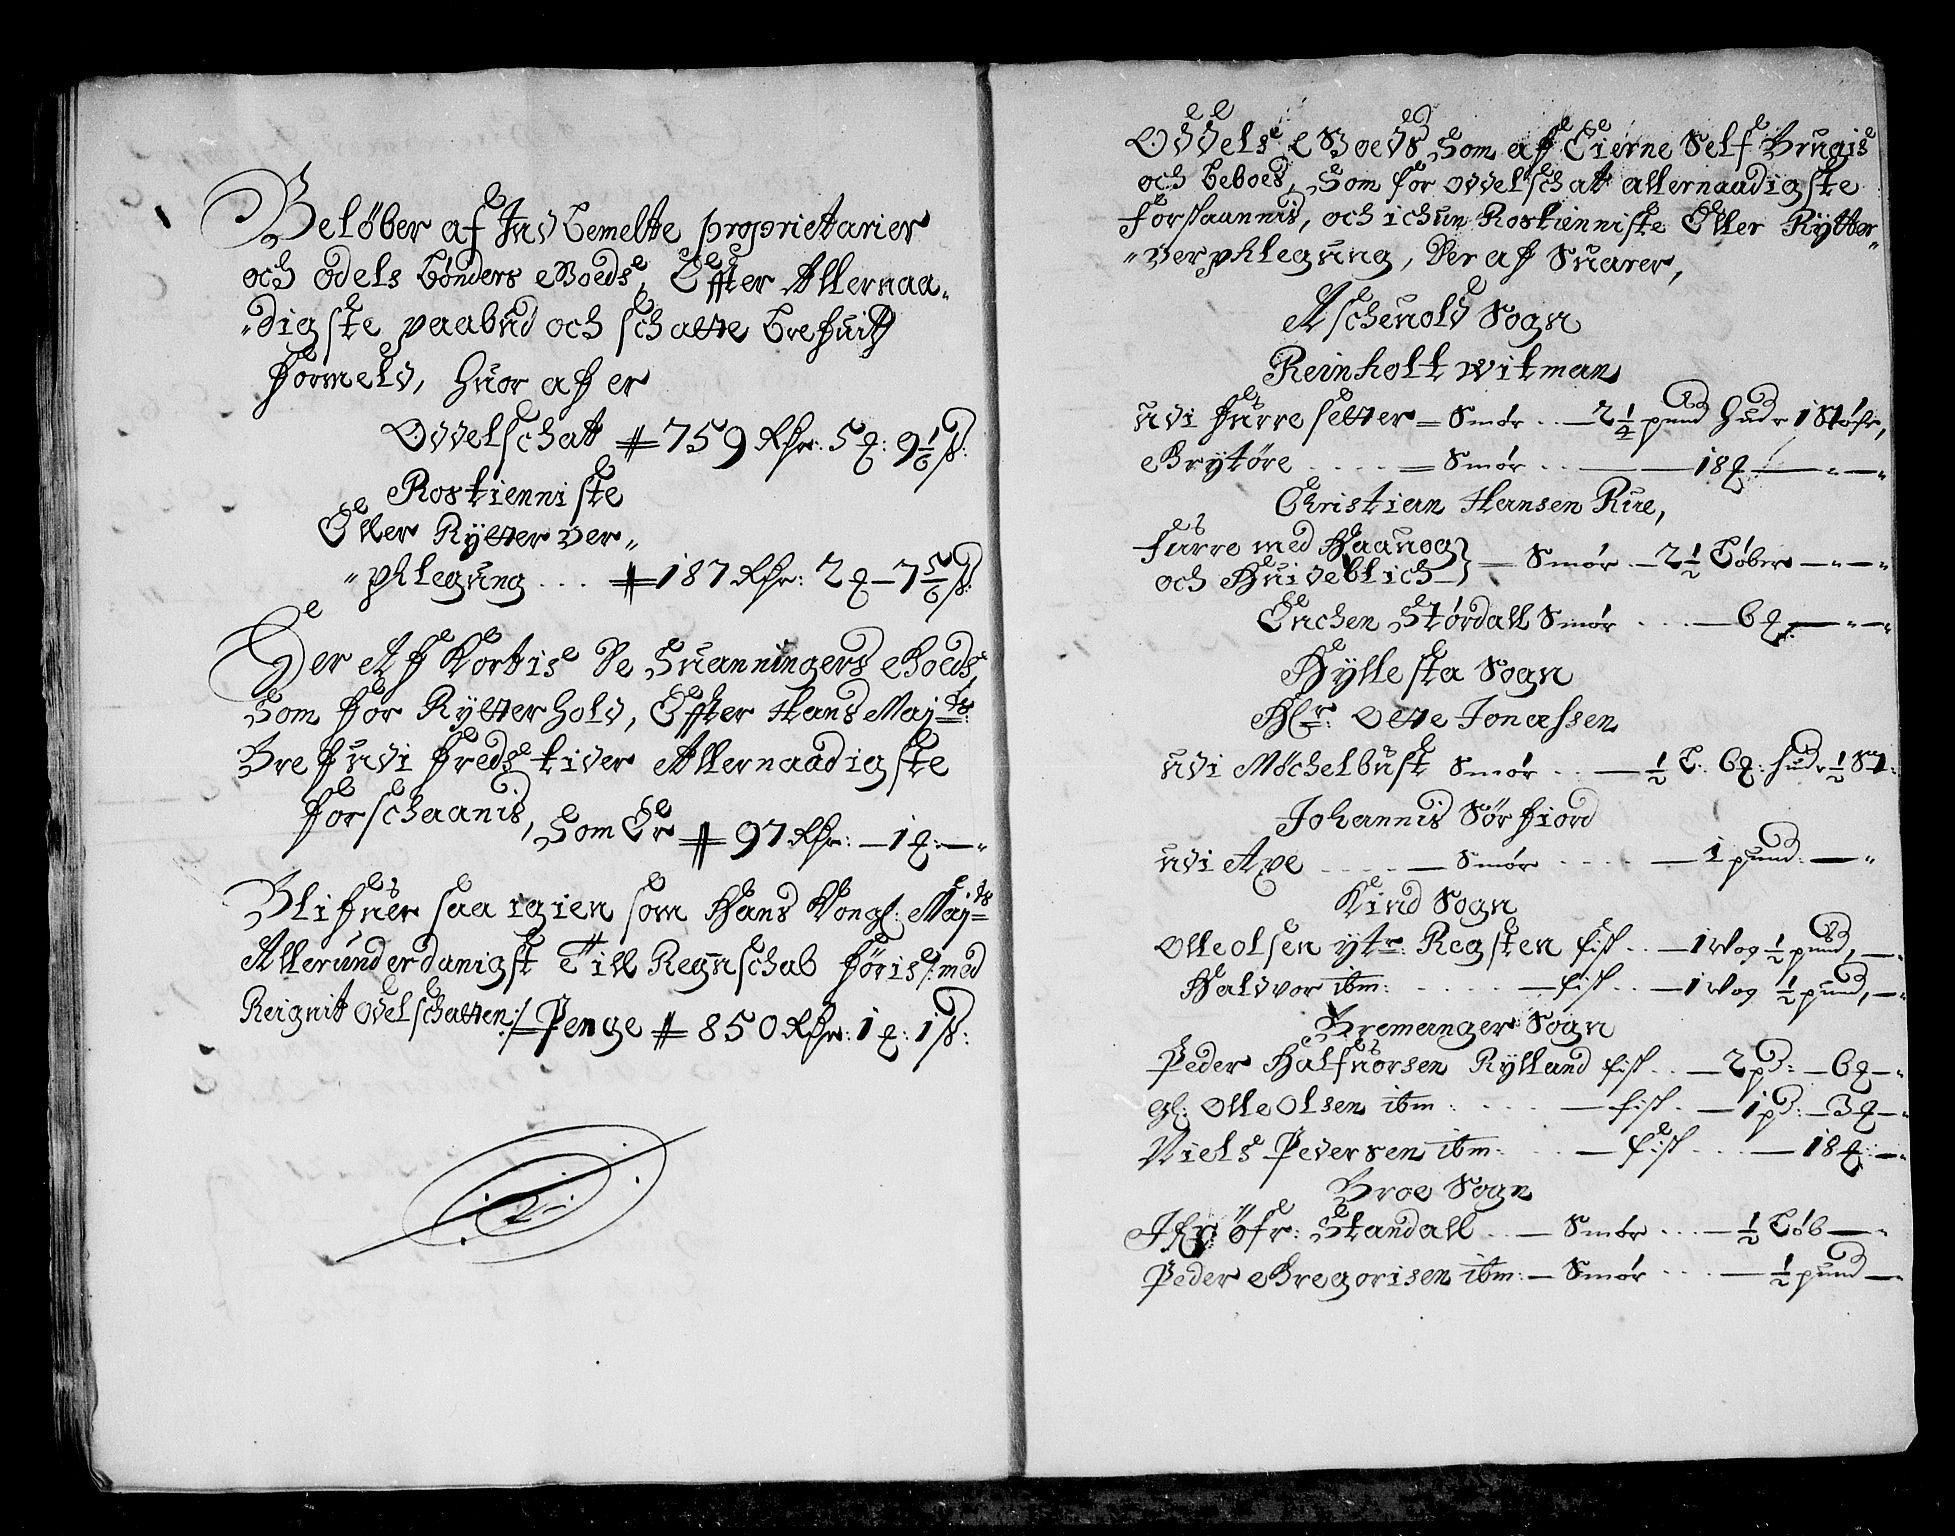 Beløber af Indbemelte proprietarier
och odels bønders Goeds, Effter Allernaa„
„digste paabud och schatte brefuis
formeld, huor af er
Oddelschatt # 759 Rdr: 5 ꝸ: 9 1/6 ß:
Rostienniste
Eller Rytter ver„
„phlegung ... # 187 Rdr: 2 ꝸ – 7 5/6 ß:
Der Af Kortis De Suanningers Goeds,
Som for Rytterhold, Effter Hans Maj:ts
Bref udi freds tider Allernaadigste
forschaanis, Som Er # 97 Rdr: – 1 ꝸ: – „
Blifuer saa igien som Hans Kongl: Maj:ts
Allerunderdanigst Till Regnschab føris /: med
Reignit Odelschatten :/ Penge # 850 Rdr: 1 ꝸ: 1 ß:
Oddels Goeds Som af Eierne Self Brugis
och beboes, Som for oddelschatt allernaadigste
forskaannis, och ichun Rostienniste Eller Rytter„
„verphlegung, Der af Suarer,
Aschevold Sogn
Reinholt Witman
udi furre setter = Smør .. – 2 1/4 pund hudr 1 Støch,
Grytøre .... = Smør .. – 18 ꝸ – „ – „
Christian Hansen Rue,
furre med Haanog
och Huideblich } = Smør . – 2 1/2 Tøber – „ – „
Enchen Størdall Smør ... – 6 ꝸ: – „ – „
Hyllesta Sogn
Hr: Otte Jonassen
udi Møchelbust Smør .. – 1/2 T: 6 ꝸ: hudr 1/2 St:
Johannis Sørfiord
udi Ape .... – Smør .... – 1 pund: – „
Kind Sogn
Olle Olsen ytr: Regsten fisk .. – 1 Wog 1/2 pund, –
Haldvor ibm: ..... – fisk .. – 1 Wog 1/2 pund, – „
Bremanger Sogn
Peder Halfuorsen Rylland fisk .. – 2 pd: – 6 ꝸ – „
gl: Olle Olsen ibm: .... – fisk . – 1 pd: – 3 ꝸ – „
Niels Pedersen ibm: ... – fisk ... – 18 ꝸ: – „
Broe Sogn
Öfr: Standall .. – Smør ... – 1/2 Tøb – „
Peder Gregorisen ibm: – Smør ... – 1/2 pund –
2